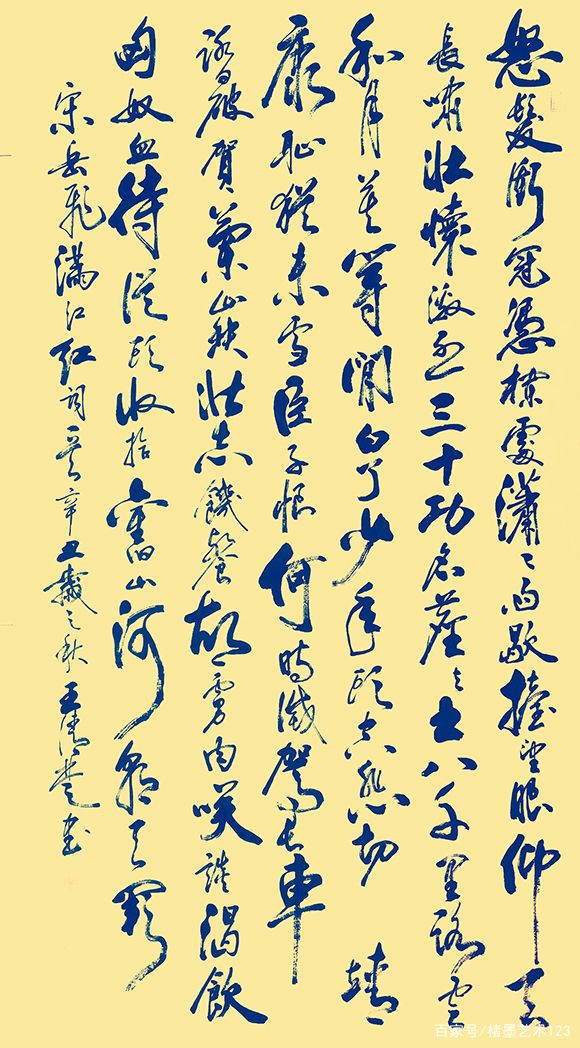 怒髮衝冠憑欄處瀟〻雨歇擡望眼仰天
長嘯壯懷激烈三十功名塵与土八千里路雲
和月莫等閒白了少年頭空悲切 靖
康恥猶未雪臣子恨何時滅駕長車
踏破賀蘭山缺壯志饑餐胡虜肉咲談渴飲
匈奴血待從頭收拾舊山河朝天闕
宋岳飛滿江紅詞一首辛丑歲之秋王書
百家号/楮墨艺术123